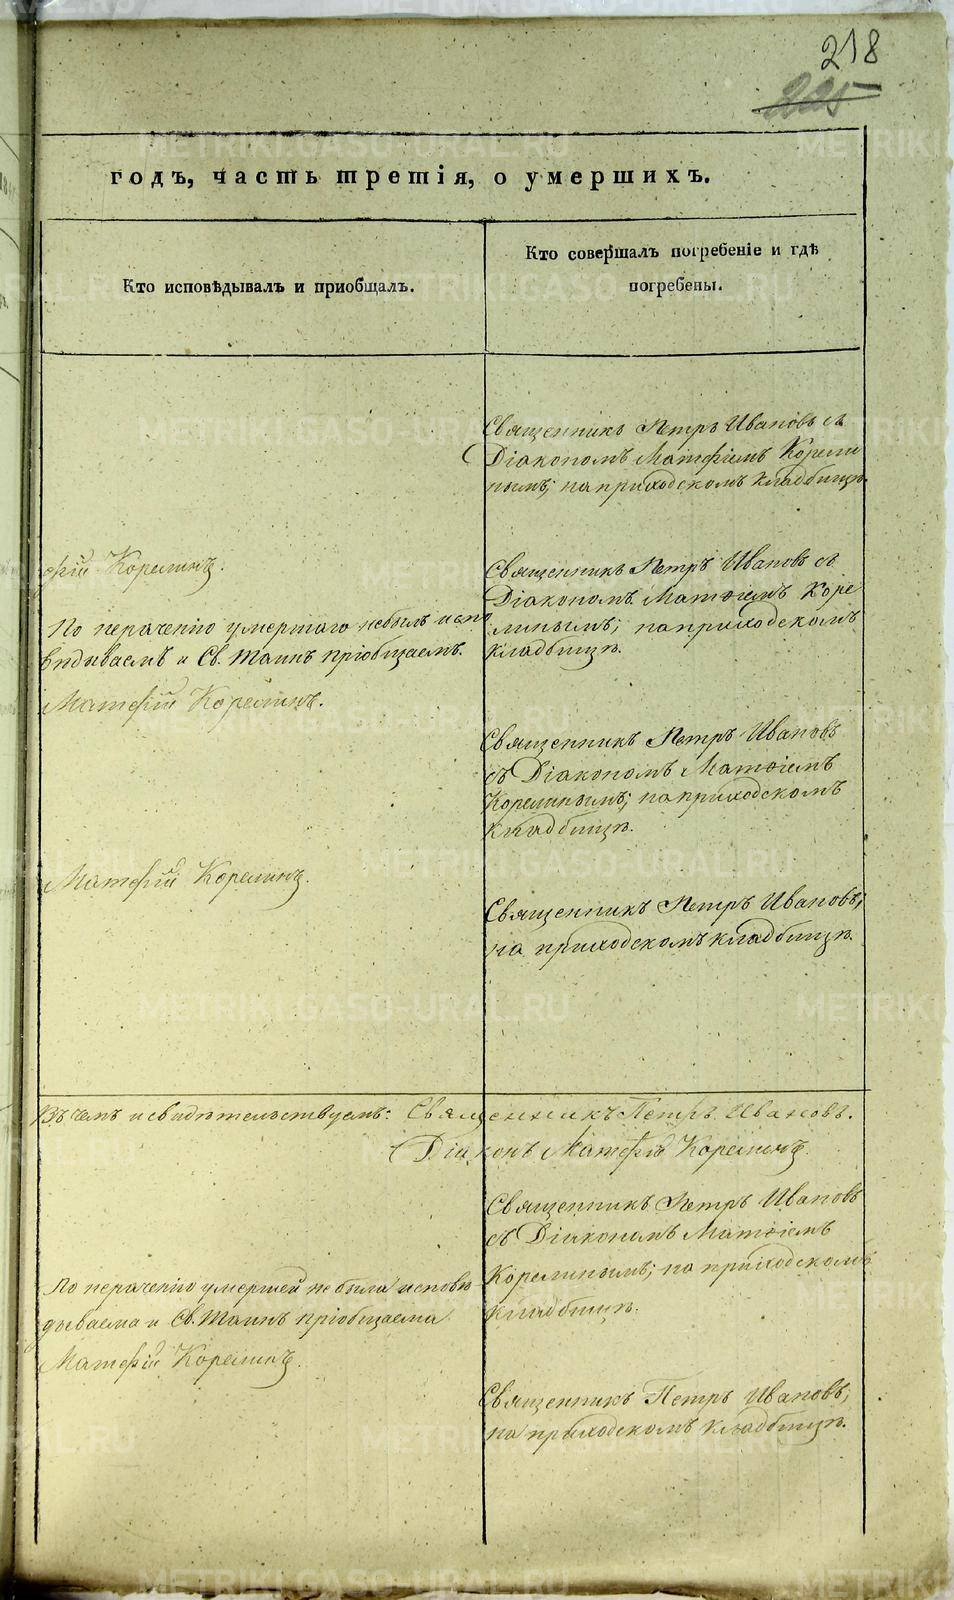 218
225
годъ, часть третія, о умершихъ.
Кто исповѣдывалъ и приобщалъ.
Кто совершалъ погребеніе и гдѣ
погребены.
Священникъ Петръ Ивановъ съ
Діакономъ Матѳіемъ Корели
нымъ; на приходскомъ кладбищѣ.
фій Корелинъ.
По нераченію умершаго небылъ испо
вѣдываемъ и Св. Таинъ пріобщаемъ.
Матфій Корелинъ.
Священникъ Петръ Ивановъ съ
Діакономъ Матѳіемъ Коре
линымъ; на приходскомъ
кладбищѣ.
Священникъ Петръ Ивановъ
съ Діакономъ Матѳіемъ
Корелинымъ; на приходскомъ
кладбищѣ.
Матфій Корелинъ.
Священникъ Петръ Ивановъ;
на приходскомъ кладбищѣ.
Въ чемъ и свидѣтельствуемъ: Священникъ Петръ Ивановъ.
Діаконъ Матфій Корелинъ.
Священникъ Петръ Ивановъ
съ Діакономъ Матѳіемъ
Корелинымъ; на приходскомъ
кладбищѣ.
По нераченію умершей не была исповѣ
дываема и Св. Таинъ пріобщаема.
Матфій Корелинъ.
Священникъ Петръ Ивановъ;
на приходскомъ кладбищѣ.
METRIKI.GASO-URAL.RU